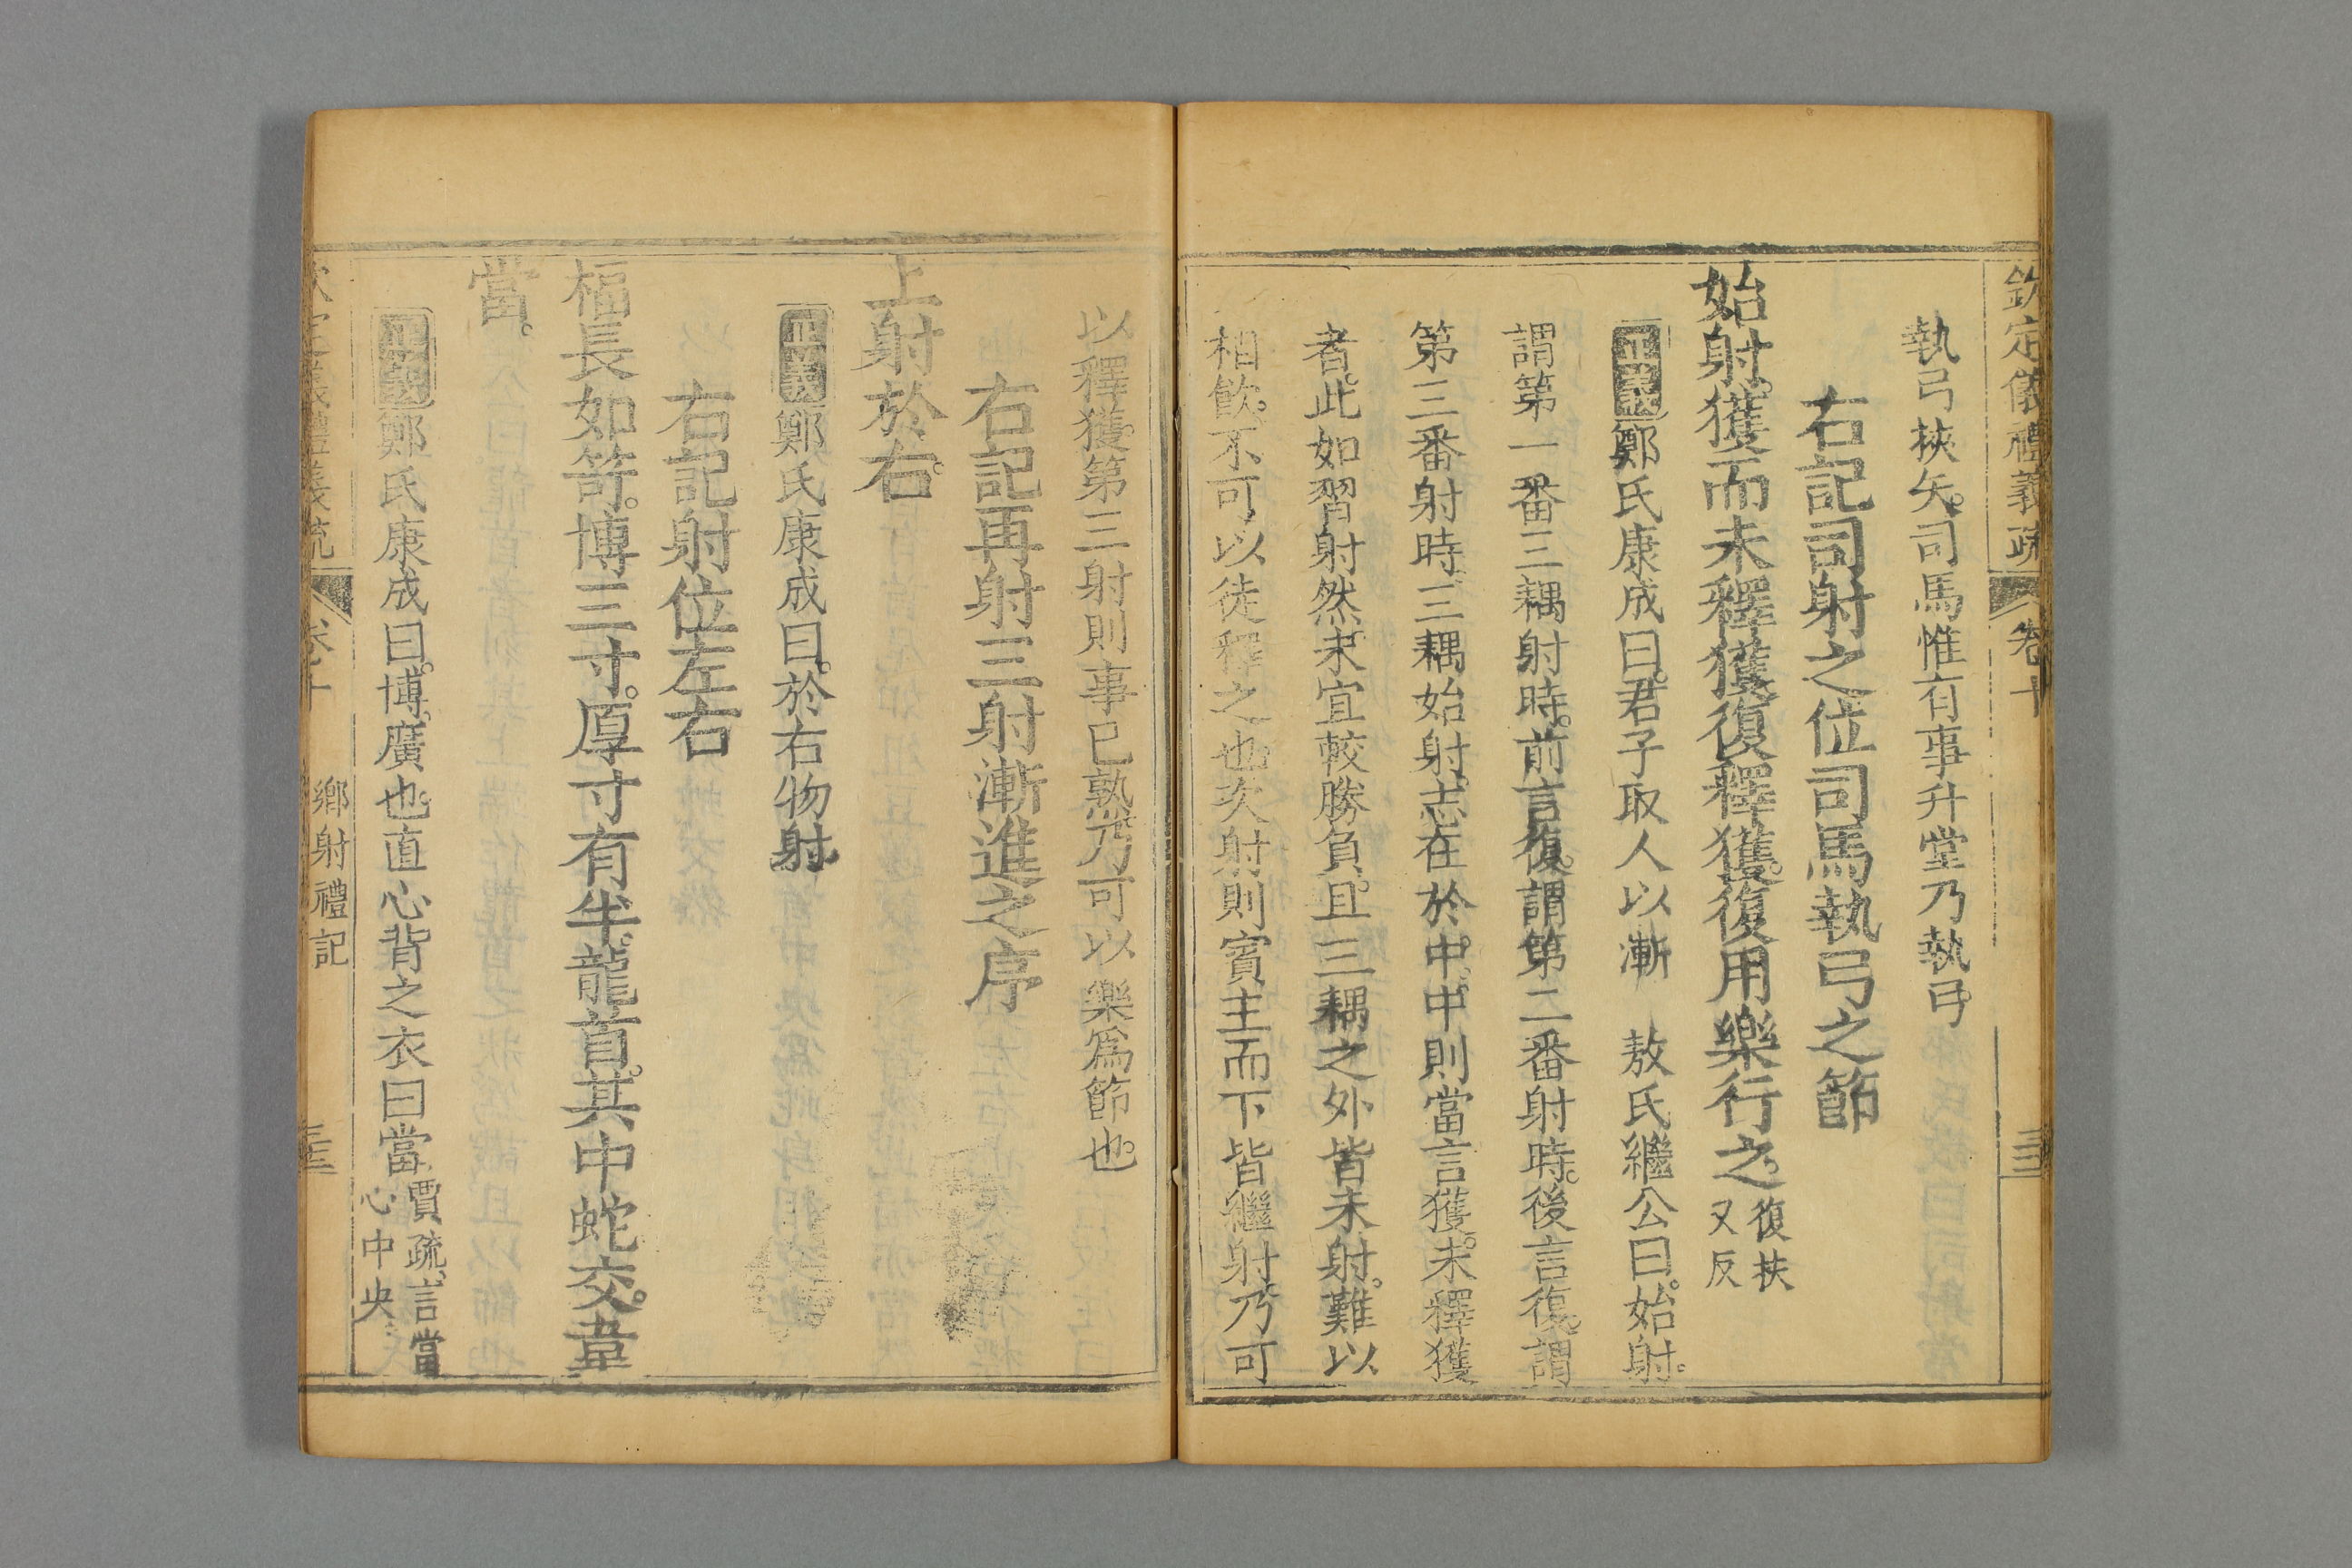 欽定儀禮義疏 卷十
執弓挾矢。司馬惟有事升堂乃執弓
右記司射之位司馬執弓之節
始射。獲而未釋獲。復釋獲。復用樂行之。復扶又反
正義鄭氏康成曰。君子取人以漸 敖氏繼公曰。始射。
謂第一番三耦射時。前言復。謂第二番射時。後言復。謂
第三番射時。三耦始射。志在於中。中則當言獲。未釋獲
者。此如習射然。未宜較勝負。且三耦之外皆未射。難以
相飲。不可以徒釋之也。次射則賓主而下皆繼射。乃可
以釋獲。第三射則事已熟。乃可以樂爲節也。
右記再射三射漸進之序
上射於右。
正義鄭氏康成曰。於右物射
右記射位左右
楅長如笴。博三寸。厚寸有半。龍首。其中蛇交。韋
當。
正義鄭氏康成曰。博。廣也。直心背之衣曰當。賈疏。言當心中央
鄉射禮記